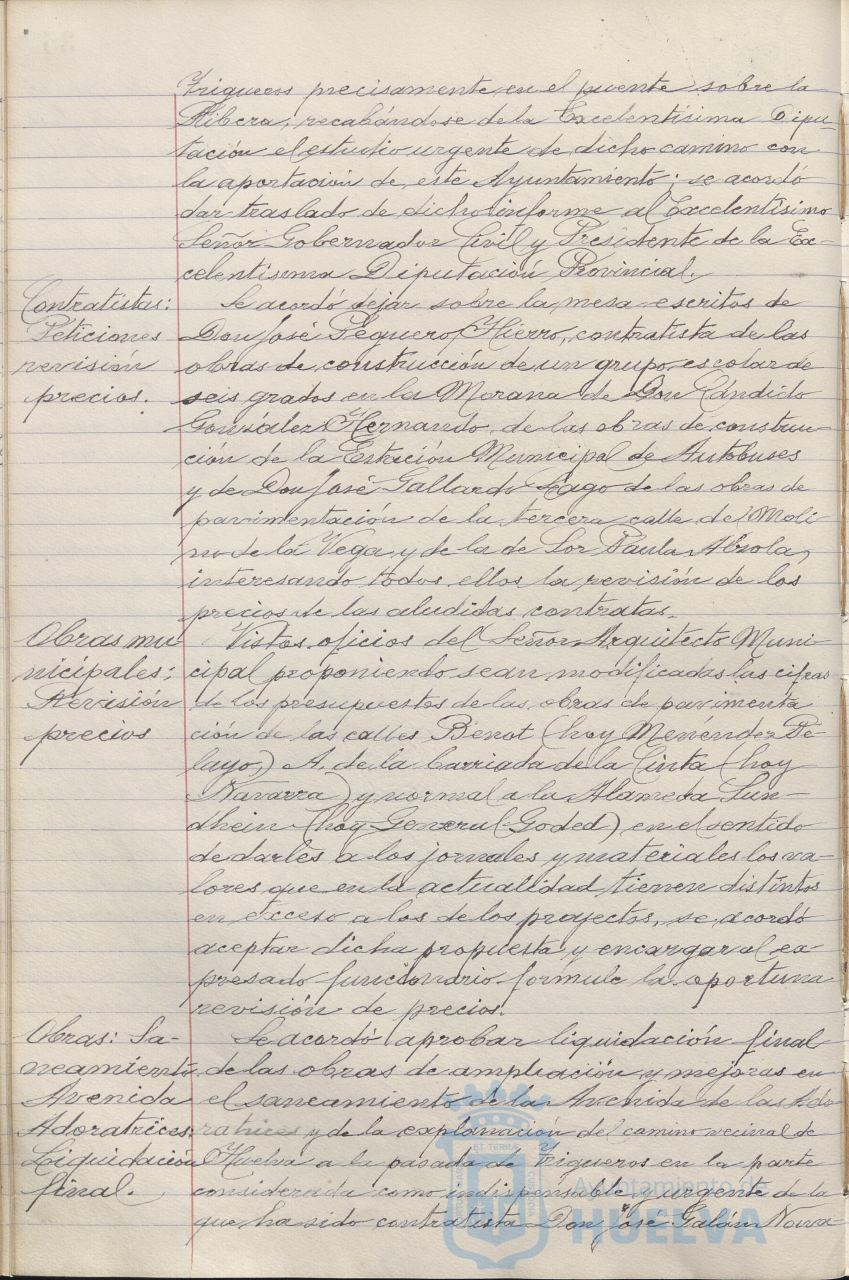 Trigueros precisamente en el puente sobre la
Ribera; recabándose de la Excelentísima Dipu-
tación el estudio urgente de dicho camino con
la aportación de este Ayuntamiento; se acordó
dar traslado de dicho informe al Excelentísimo
Señor Gobernador Civil y Presidente de la Ex-
celentisima Diputación Provincial.
Contratistas:
Peticiones
revisión
precios.
Se acordó dejar sobre la mesa escritos de
Don José Peguero Hierro, contratista de las
obras de construcción de un grupo escolar de
seis grados en las Morana de Don Cándido
González Hernando, de las obras de construc-
ción de la Estación Municipal de Autobuses
y de Don José Gallardo Lago de las obras de
pavimentación de la tercera calle del Moli
no de la Vega y de la de Sor Paula Alzola,
interesando todos ellos la revisión de los
precios de las aludidas contratas.
Obras mu
nicipales:
Revisión
precios
Vistos oficios del Señor Arquitecto Muni-
cipal proponiendo sean modificadas las cifras
de los presupuestos de las obras de pavimenta
ción de las calles Benot (hoy Menéndez Pe-
layo) A. de la barriada de la Cinta (hoy
Navarra) y normal a la Alameda Sun-
dhein (hoy General Goded) en el sentido
de darles a los jornales y materiales los va-
lores que en la actualidad tienen distintos
en exceso a los de los proyectos, se acordó
aceptar dicha propuesta y encargar al ex-
presado funcionario formule la oportuna
revisión de precios.
Obras: Sa-
neamiento
Avenida
Adoratrices:
Liquidación
final.
Se acordó aprobar liquidación final
de las obras de ampliación y mejoras en
el saneamiento de la Avenida de las Ado
ratrices y de la explanación del camino vecinal de
Huelva a la pasada de Trigueros en la parte
considerada como indispensable y urgente de la
que ha sido contratista Don José Galán Nava-
Ayuntamiento de
HUELVA